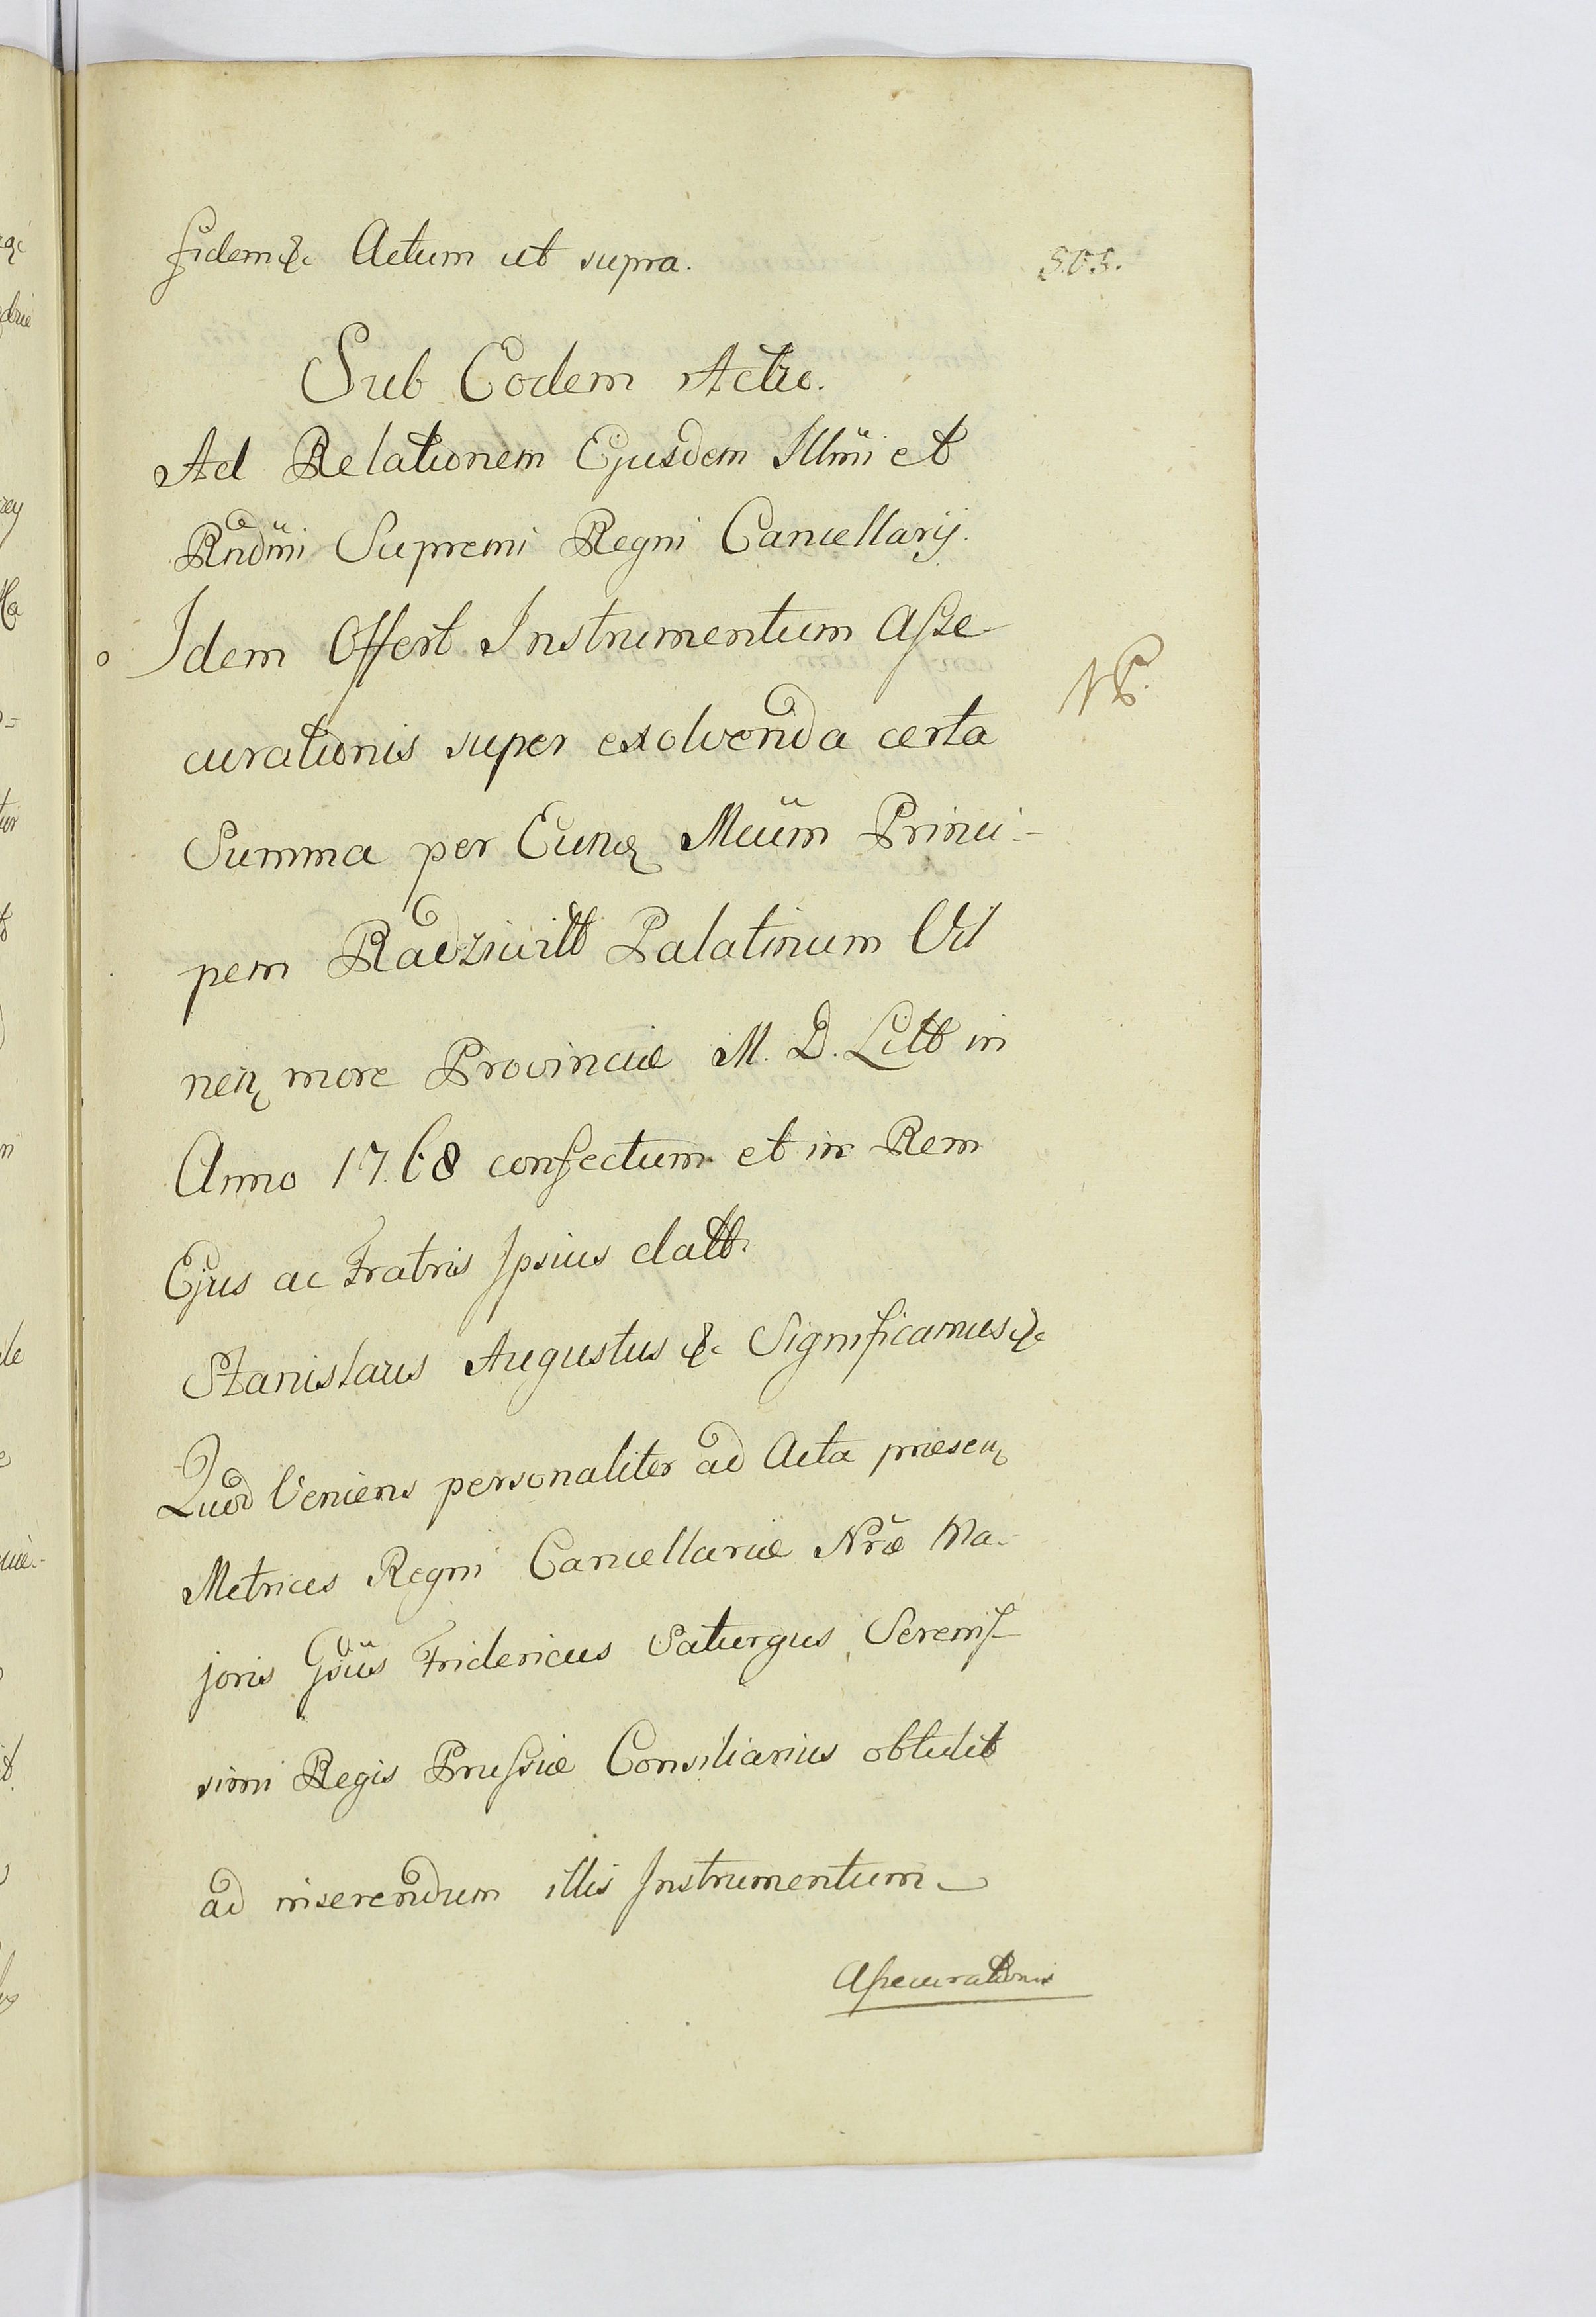 fidem &c Actum ut supra.
505.
Sub Eodem Actu.
Ad Relationem Ejusdem Illmi et
Rndmi Supremi Regni Cancellarij.
Idem Offert Instrumentum Asse-
curationis super exolvenda certa
Summa per Eund Mcum Princi-
pem Radziwill Palatinum Vil
nen more Provinciæ M. D. Litt in
Anno 1768 confectum et in Rem
Ejus ac Fratris Ipsius datt.
Stanislaus Augustus &c Significamus &c
Quod Veniens personaliter ad Acta præsen
Metrices Regni Cancellariæ Nræ Ma-
joris Gsus Fridericus Saturgus, Serenis-
simi Regis Prussiæ Consiliarius obtulit
ad inserendum illis Instrumentum
Assecurationis